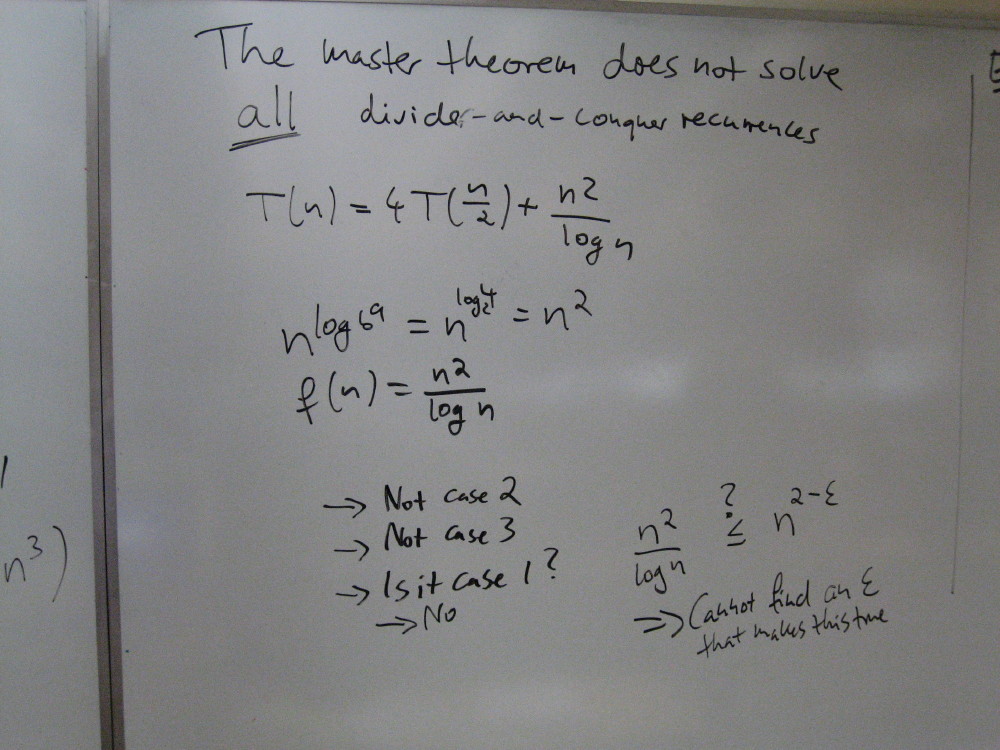 The master theorem does not solve
all divide-and-conquer recurrences
T(n) = 4T(n/2) + n²/log n
n^log_b a = n^log_2 4 = n²
f(n) = n²/log n
→ Not case 2
→ Not case 3
→ Is it case 1?
→ No
n²/log n ≤? n^2-ε
⇒ Cannot find an ε
that makes this true
n³)